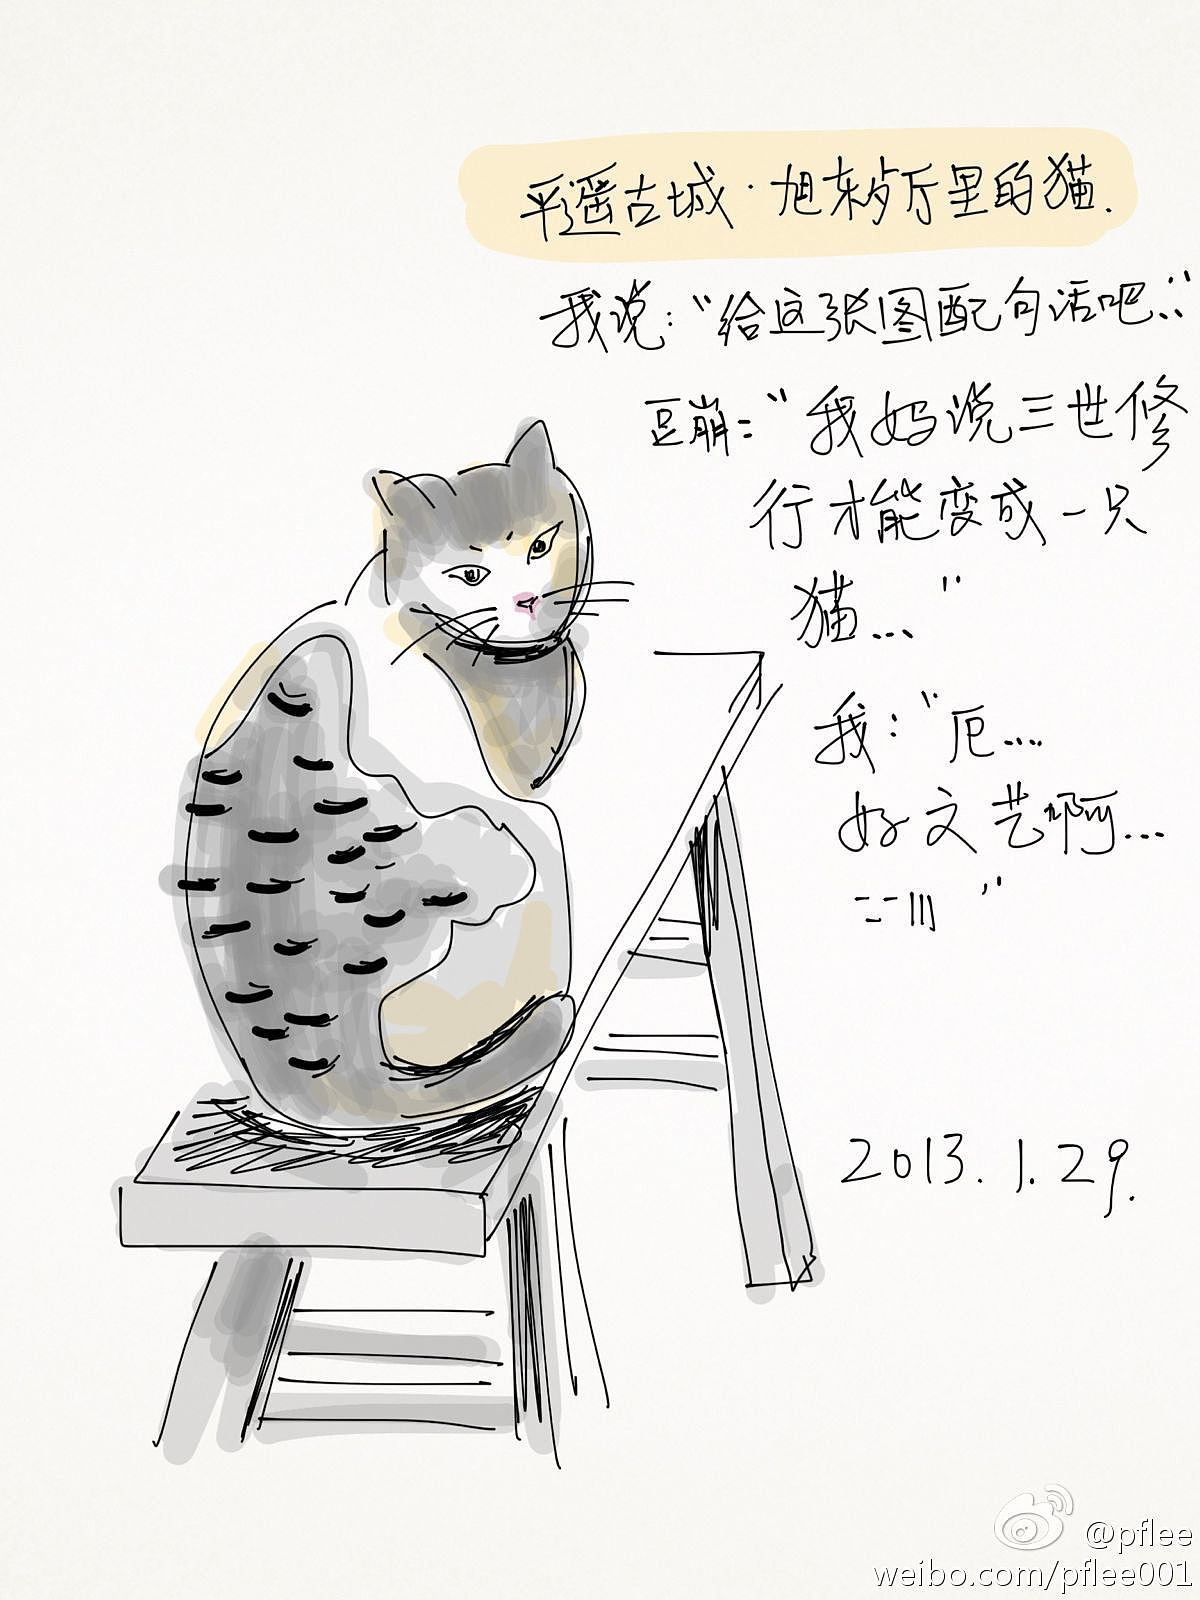 平遥古城·旭东岁厅里的猫.
我说:“给这张图配句话吧:”
豆崩:“我妈说三世修
行才能变成一只
猫…”
我:“厄…
好文艺啊…
=-|||”
2013.1.29.
@pflee
weibo.com/pflee001